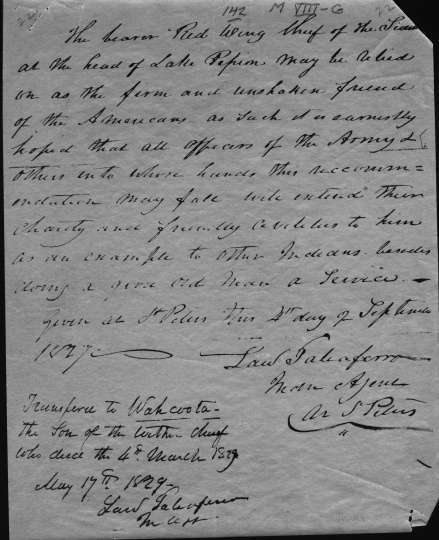 22
142
M VIII-G
22
The bearer Red Wing Chief of the Sioux
at the head of Lake Pepin may be relied
on as the firm and unshaken friend
of the Americans as such it is earnestly
hoped that all officers of the Army &
others into whose hands this recomm-
endation may fall will extend their
Charity and friendly civilities to him
as an example to other Indians besides
doing a good old man a Service.—
Given at St Peters this 4th day of September
1827.
Law Taliaferro
Indn Agent
at St Peters
Transferred to Wahcoota
the Son of the within chief
who died the 4th March 1829
May 17th 1829.
Law Taliaferro